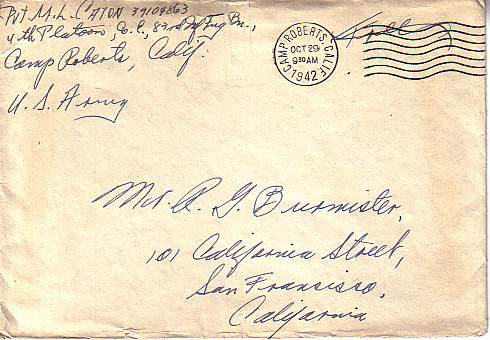 Pvt M.L. CATON 39109863
4th Platoon, Co. C., 83rd Inf Trg Bn.,
Camp Roberts, Calif.
U.S. Army
CAMP ROBERTS, CALIF.
OCT 29
9 30 AM
1942
Free
Mr. A. G. Burmister,
101 California Street,
San Francissco,
California